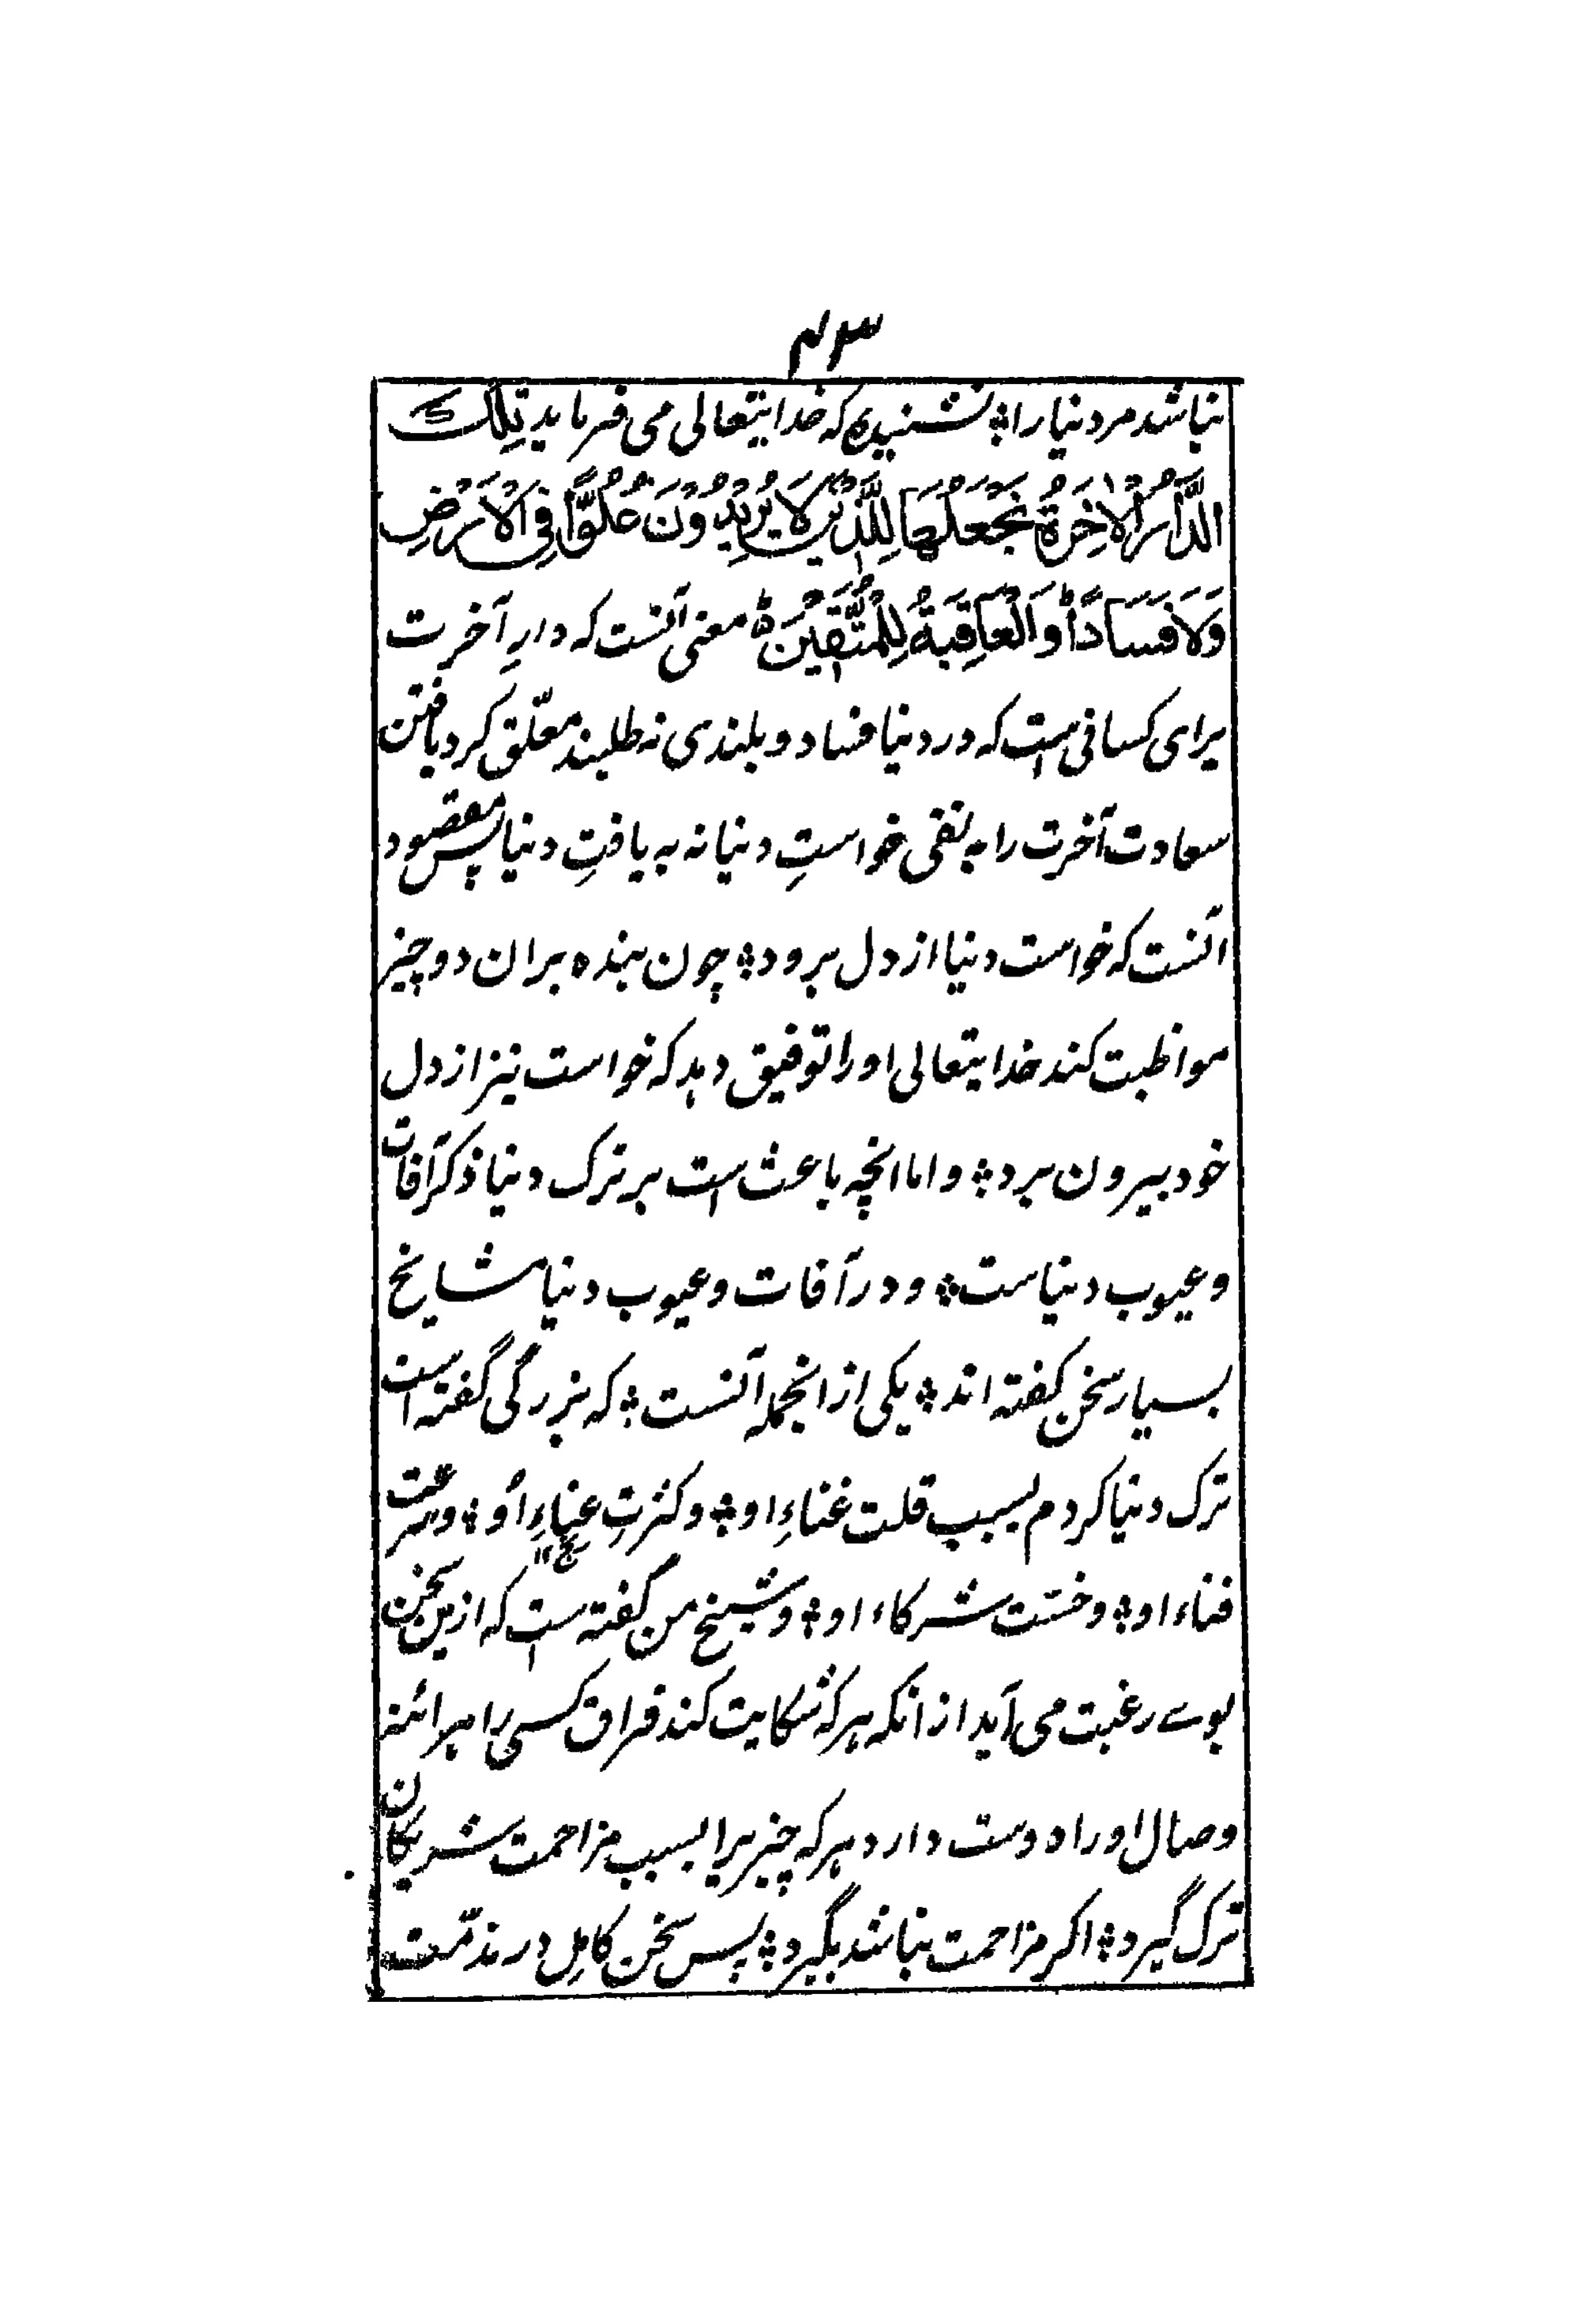 ۴۳
نباشد مر دنیا را؞ نشنیدهٔ که خدایتعالی می فرماید تِلْكَ
الدَّارُ الْاٰخِرَةُ نَجْعَلُهَا لِلَّذِيْنَ لَا يُرِيْدُوْنَ عُلُوًّا فِي الْاَرْضِ
وَلَا فَسَادًا ؕ وَالْعَاقِبَةُ لِلْمُتَّقِيْنَ ۵ معنی آنست که دارِ آخرت
برای کسانی است که در دنیا فساد و بلندی نه طلبند معلّق کرد یافتن
سعادت آخرت را به نفی خواستِ دنیا نه به یافتِ دنیا پس مقصود
آنست که خواست دنیا از دل برود؞ چون بنده بران دو چیز
مواظبت کند خدایتعالی او را توفیق دهد که خواست نیز از دل
خود بیرون برد؞ و اما انچه باعث است بر ترک دنیا ذکر آفات
و عیوب دنیاست؞ و در آفات و عیوب دنیا مشایخ
بسیار سخن گفته اند؞ یکی از انجمله آنست؞ که بزرگی گفته است
ترک دنیا کردم بسبب قلت غناءِ او؞ و کثرتِ عناءِ اُو؞ و سرعت
فناء او؞ و خسّت شرکاء او؞ و شیخ من گفته است که ازین سخن
بوے رغبت می آید از آنکه هرکه شکایت کند فراق کسی را هر ائنه
وصال او را دوست دارد هرکه چیزیرا بسبب مزاحمت شریکان
ترک گیرد؞ اکر مزاحمت نباشد بگیرد؞ پس سخن کامِل در مذمّت